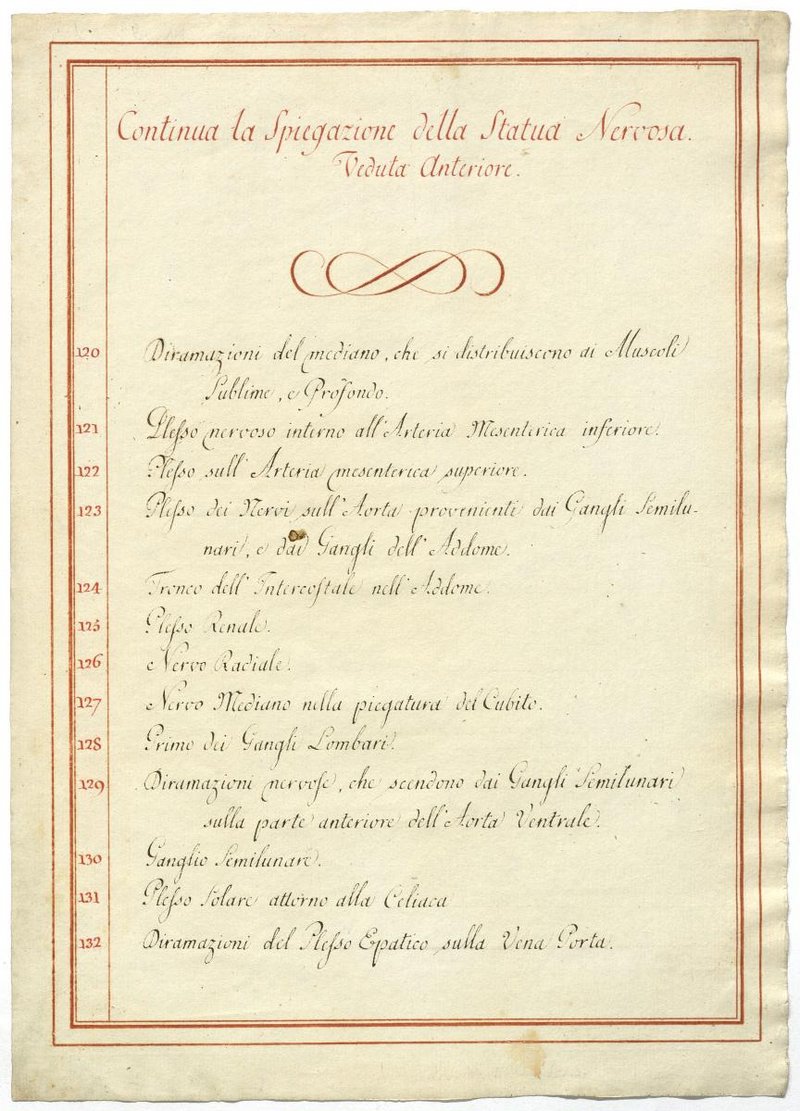 Continua la Spiegazione della Statua Nervosa.
Veduta Anteriore.
120 Diramazioni del mediano, che si distribuiscono ai Muscoli
Sublime, e Profondo.
121 Plesso nervoso intorno all'Arteria Mesenterica inferiore.
122 Plesso sull'Arteria mesenterica superiore.
123 Plesso dei Nervi sull'Aorta provenienti dai Gangli Semilu-
nari, e dai Gangli dell'Addome.
124 Tronco dell'Intercostale nell'Addome.
125 Plesso Renale.
126 Nervo Radiale.
127 Nervo Mediano nella piegatura del Cubito.
128 Primo dei Gangli Lombari.
129 Diramazioni nervose, che scendono dai Gangli Semilunari
sulla parte anteriore dell'Aorta Ventrale.
130 Ganglio Semilunare.
131 Plesso Solare attorno alla Celiaca
132 Diramazioni del Plesso Epatico sulla Vena Porta.